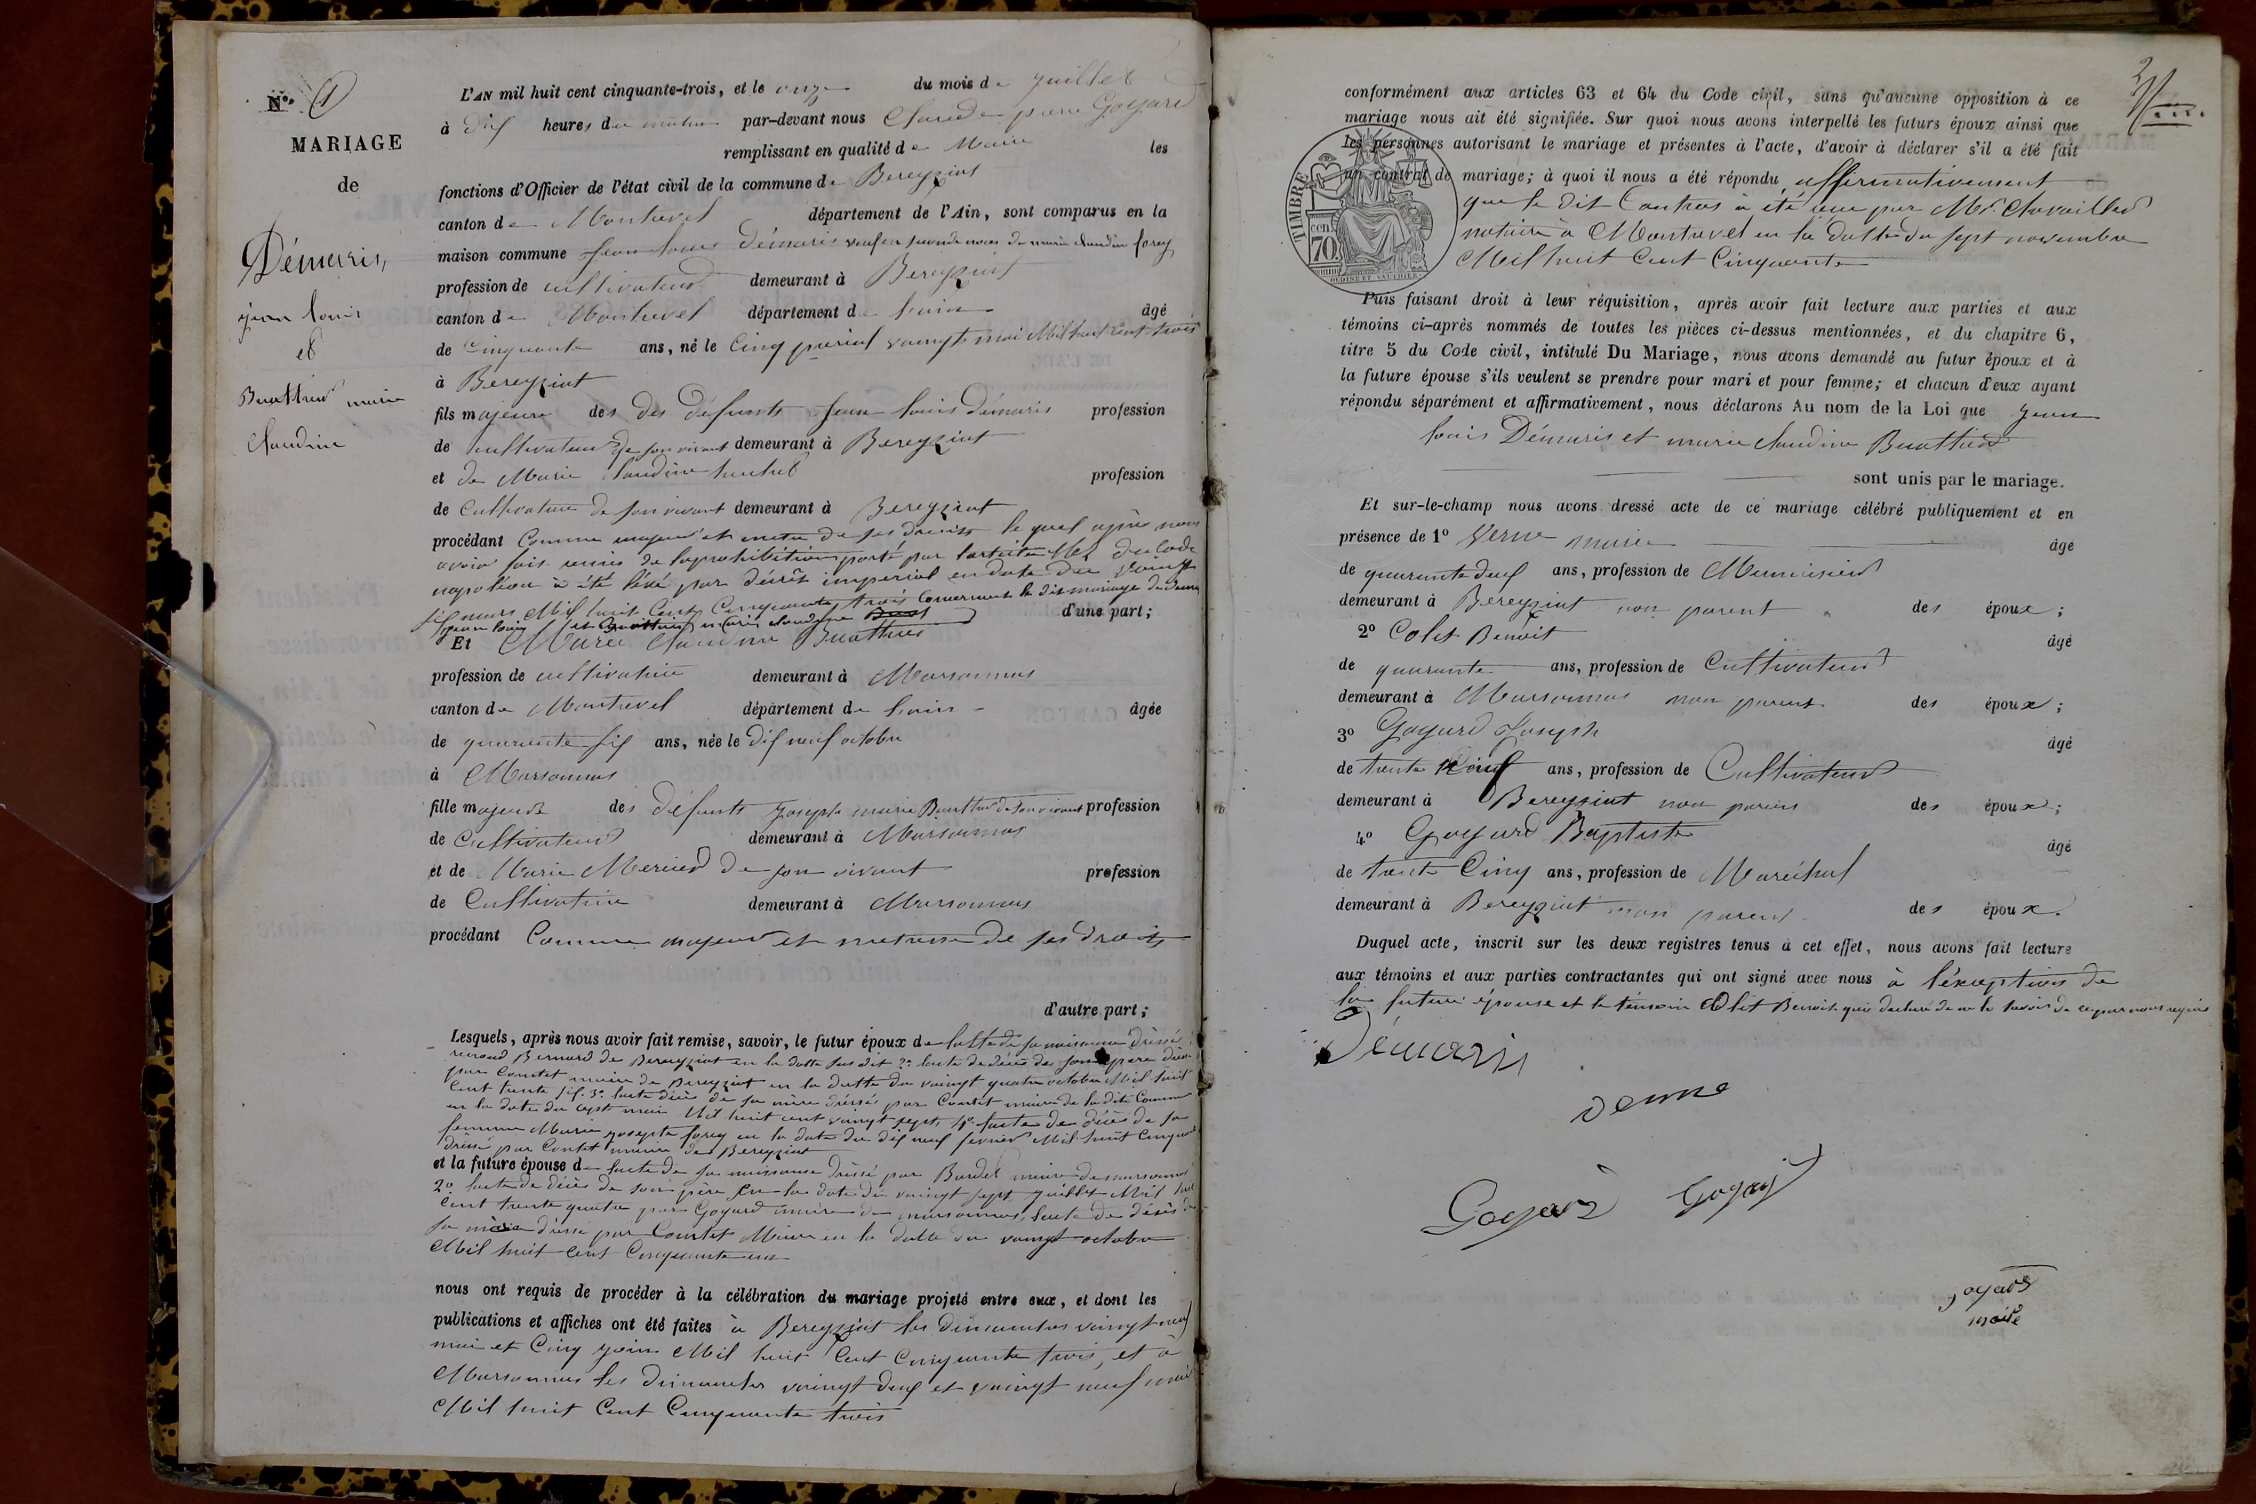 N° 1
MARIAGE
de
Démaris,
jean louis
et
Buattier marie
claudine
L'AN mil huit cent cinquante-trois, et le onze du mois de juillet
à dix heures du matin par-devant nous Claude pierre Goyard
remplissant en qualité de Maire les
fonctions d'Officier de l'état civil de la commune de Bereyziat
canton de Montrevel département de l'Ain, sont comparus en la
maison commune jean louis Démaris veuf en seconde noces de marie claudine forey
profession de cultivateur demeurant à Bereyziat
canton de Montrevel département de lain âgé
de cinquante ans, né le Cinq prérial vaingt mai Mil huit cent trois
à Bereyziat
fils majeur des des défunts Jean louis démaris profession
de cultivateur de son vivant demeurant à Bereyziat
et de Marie Claudine profession
de Cultivatrice de son vivant demeurant à Bereyziat
procédant Comme majeur et metre de ses droits le quel après nous
avoir fait remis de la prohibition porté par larticle du Code
napoléon à été levé par décrêt impérial en date du vaingt
six mars Mil huit Cent Cinquante trois Concernant le dit mariage de demaris
jean louis et marie claudine d'une part;
Et Marie Claudine Buattier
profession de cultivatrice demeurant à Marsonnas
canton de Montrevel département de lain âgée
de quarante six ans, née le dix neuf octobre
à Marsonnas
fille majeure des défunts Joseph marie Buattier de son vivant profession
de Cultivateur demeurant à Marsonnas
et de Marie Mercier de son vivant profession
de Cultivatrice demeurant à Marsonnas
procédant Comme majeur et metresse de ses droits
d'autre part;
Lesquels, après nous avoir fait remise, savoir, le futur époux de lactte de sa naissance dréssé
renaud Bernard de Bereyziat en la datte sus dit 2° lacte de décès de son père dréssé
par Contet maire de Bereyziat en la datte du vaingt quatre octobre Mil huit
Cent trente six. 3° lacte décès de sa mère dréssé par Contet maire de la dite Commune
en la date du sept mai Mil huit cent vaingt sept, 4° lacte de décès de sa
femme Marie josepte forey en la date du dix neuf fevrier Mil huit Cinquante
dréssé par Contet maire de Bereyziat
et la future épouse de lacte de sa naissance dréssé par Bardet maire de marsonnas
2° lacte de décès de son père En la date du vaingt sept juillet Mil huit
Cent trente quatre par Goyard maire de marsonnas, lacte de décès de
sa mère dréssé par Courtet Maire en la datte du vaingt octobre
Mil huit Cent Cinquante un
nous ont requis de procéder à la célébration du mariage projeté entre eux, et dont les
publications et affiches ont été faites à Bereyziat les dimanches vaingt neuf
mai et Cinq juin Mil huit Cent Cinquante trois, et à
Marsonnas les dimanches vaingt deux et vaingt neuf mai
Mil huit Cent Cinquante trois
conformément aux articles 63 et 64 du Code civil, sans qu'aucune opposition à ce
mariage nous ait été signifiée. Sur quoi nous avons interpellé les futurs époux ainsi que
les personnes autorisant le mariage et présentes à l'acte, d'avoir à déclarer s'il a été fait
un contrat de mariage; à quoi il nous a été répondu affirmativement
que le dit Contras à été reçu par Me Chevailler
notaire à Montrevel en la datte du sept novembre
Mil huit Cent Cinquante
TIMBRE
70 cen
Puis faisant droit à leur réquisition, après avoir fait lecture aux parties et aux
témoins ci-après nommés de toutes les pièces ci-dessus mentionnées, et du chapitre 6,
titre 5 du Code civil, intitulé Du Mariage, nous avons demandé au futur époux et à
la future épouse s'ils veulent se prendre pour mari et pour femme; et chacun d'eux ayant
répondu séparément et affirmativement, nous déclarons Au nom de la Loi que jean
louis Démaris et marie claudine Buattier
sont unis par le mariage.
Et sur-le-champ nous avons dressé acte de ce mariage célébré publiquement et en
présence de 1° Verne marie âgé
de quarante deux ans, profession de Menuisier
demeurant à Bereyziat non parent des époux;
2° Colet Benoit âgé
de quarante ans, profession de Cultivateur
demeurant à Marsonnas non parent des époux;
3° Goyard Joseph âgé
de trente neuf ans, profession de Cultivateur
demeurant à Bereyziat non parens des époux;
4° Goyard Baptiste âgé
de trente Cinq ans, profession de Maréchal
demeurant à Bereyziat non parent des époux.
Duquel acte, inscrit sur les deux registres tenus à cet effet, nous avons fait lecture
aux témoins et aux parties contractantes qui ont signé avec nous à l'éxception de
la future épouse et le témoin Colet Benoit qui déclaré de ne le savoir de ce par nous requis
Démaris
verne
Goyard Goyard
goyard
maire